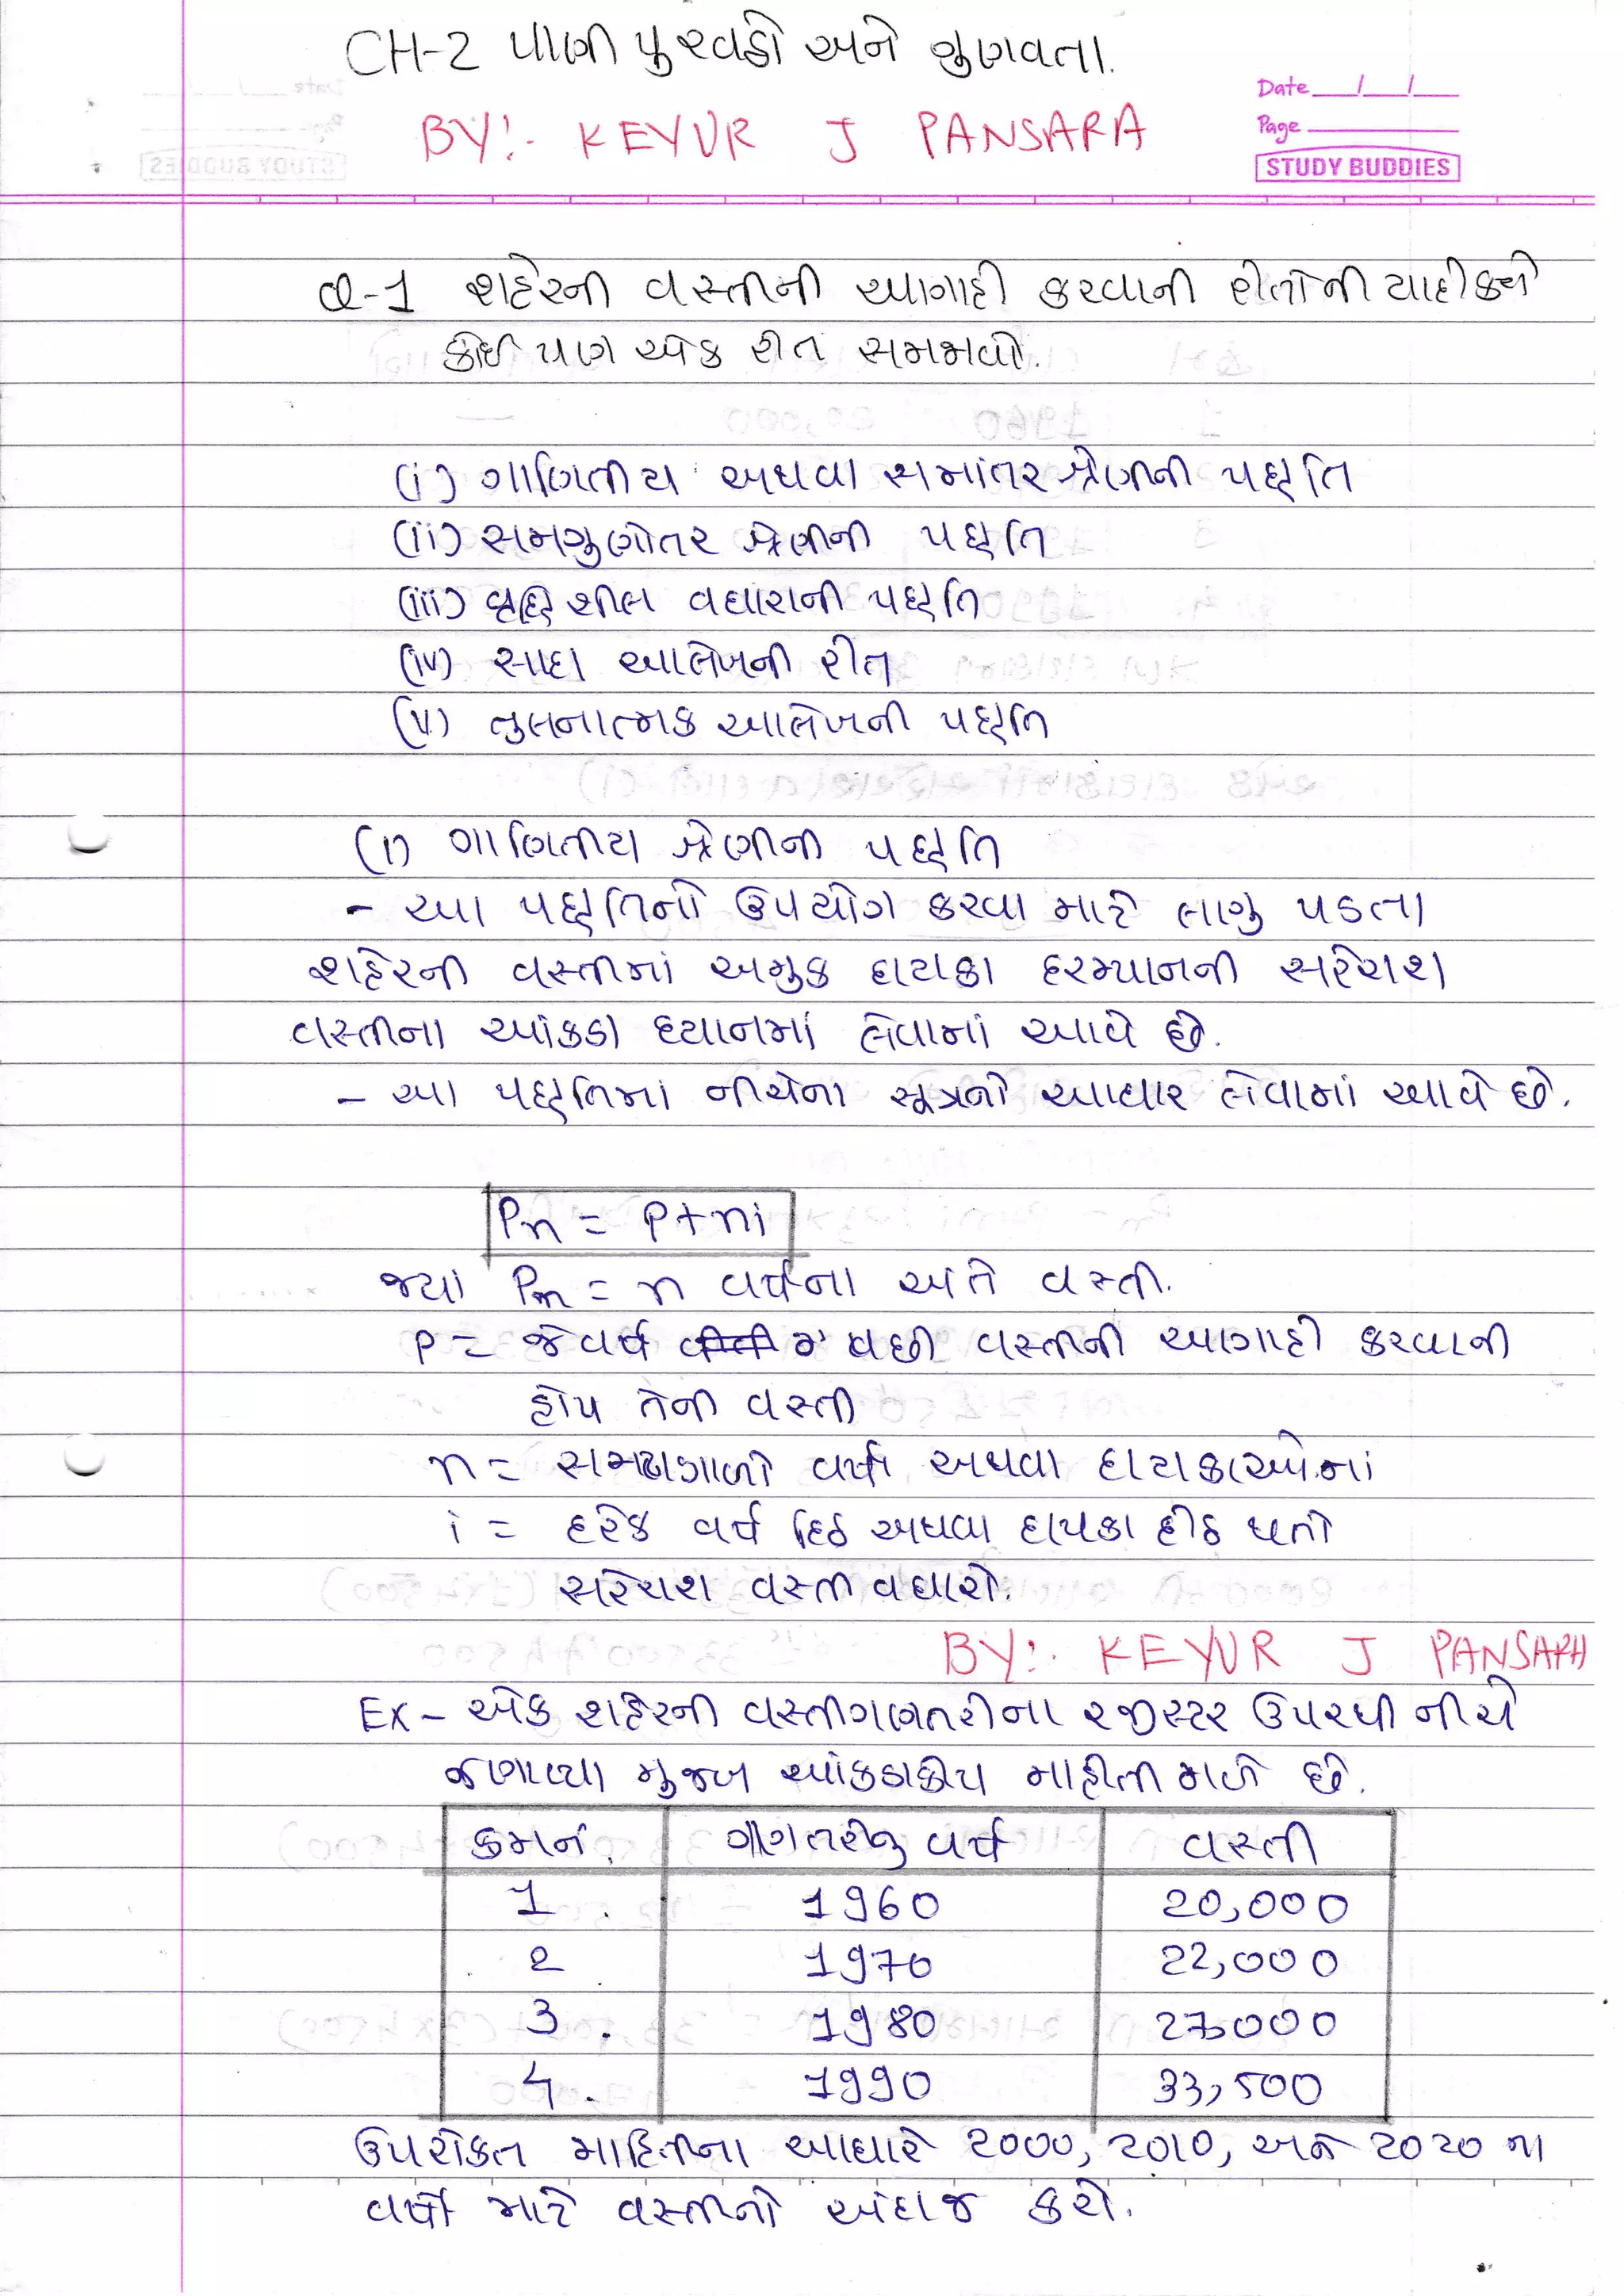 CH-2 પાણી પુરવઠો અને ગુણવતા.
BY:- KEYUR J PANSARA
Date / /
Page
STUDY BUDDIES
Q-1 શહેરની વસ્તીની આગાહી કરવાની રીતોની યાદી કરો
કોઈ પણ એક રીત સમજાવો.
(i) ગાણિતીય અથવા સમાંતર શ્રેણીની પદ્ધતિ
(ii) સમગુણોતર શ્રેણીની પદ્ધતિ
(iii) વૃદ્ધિ શીલ વધારાની પદ્ધતિ
(iv) સાદા આલેખની રીત
(v) તુલનાત્મક આલેખની પદ્ધતિ
(i) ગાણિતીય શ્રેણીની પદ્ધતિ
- આ પદ્ધતિનો ઉપયોગ કરવા માટે લાગુ પડતા
શહેરની વસ્તીમાં અમુક દાયકા દરમ્યાનની સરેરાશ
વસ્તીના આંકડા ધ્યાનમાં લેવામાં આવે છે.
- આ પદ્ધતિમાં નીચેના સૂત્રનો આધાર લેવામાં આવે છે.
Pn = P+ni
જ્યાં Pn = n વર્ષના અંતે વસ્તી.
P = જે વર્ષ પછી વસ્તીની આગાહી કરવાની
હોય તેની વસ્તી
n = સમયગાળો વર્ષ અથવા દાયકાઓમાં
i = દરેક વર્ષ દિઠ અથવા દાયકા દીઠ થતો
સરેરાશ વસ્તી વધારો.
BY:- KEYUR J PANSARA
Ex - એક શહેરની વસ્તીગણતરીના રજીસ્ટર ઉપરથી નીચે
જણાવ્યા મુજબ આંકડાકીય માહીતી મળે છે.
ક્રમનં. ગણતરીનુ વર્ષ વસ્તી
1. 1960 20,000
2 1970 22,000
3. 1980 27,000
4. 1990 33,500
ઉપરોકત માહિતીના આધારે 2000, 2010, અને 2020 ના
વર્ષો માટે વસ્તીનો અંદાજ કરો.